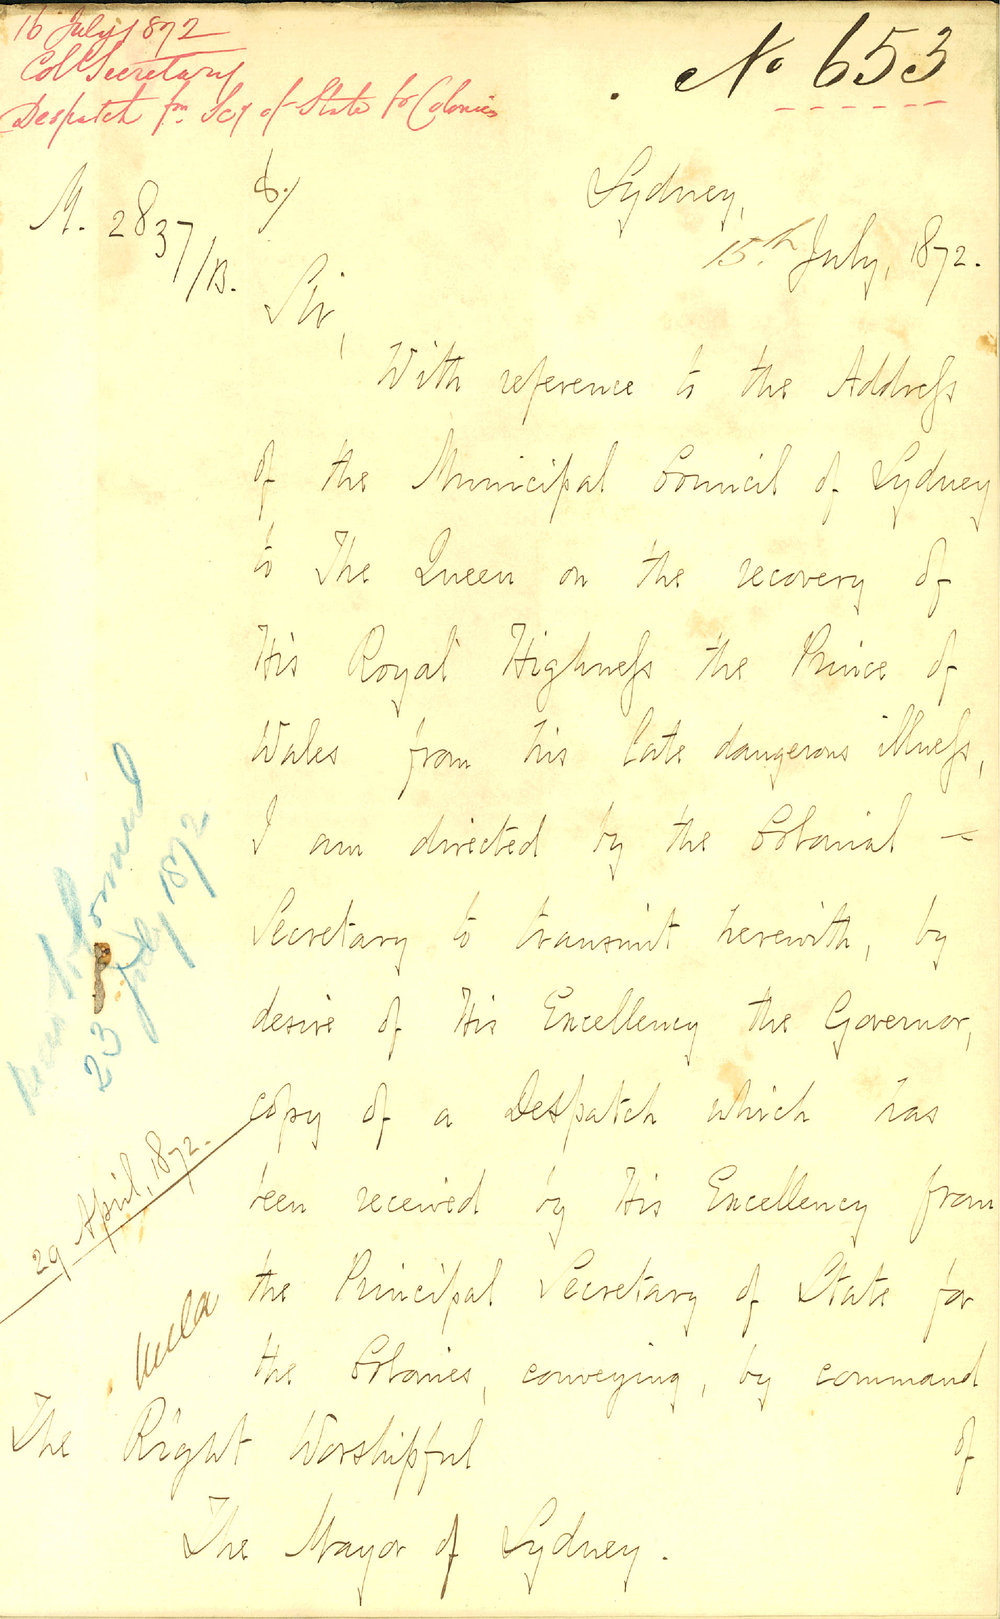 16 July 1872
Col Secretary
Despatch fm Secy of State to Colonies
No 653
M. 2837/B.
Sydney,
15th July, 1872.
Sir,
With reference to the Address
of the Municipal Council of Sydney
to The Queen on the recovery of
His Royal Highness the Prince of
Wales from his late dangerous illness,
I am directed by the Colonial –
Secretary to transmit herewith, by
desire of His Excellency the Governor,
copy of a Despatch which has
been received by His Excellency from
the Principal Secretary of State for
the Colonies, conveying, by command
of
23 July 1872
29 April, 1872.
The Right Worshipful
The Mayor of Sydney.